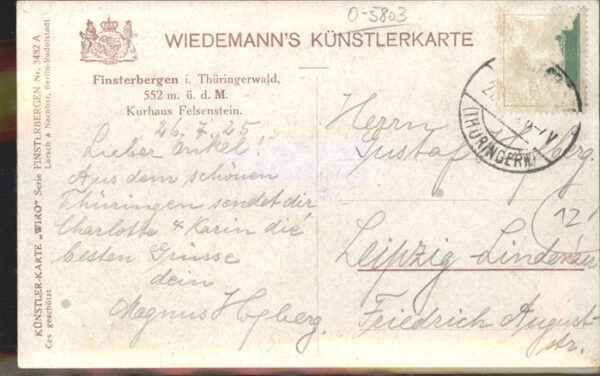 O-5803
WIEDEMANN'S KÜNSTLERKARTE
Finsterbergen i. Thüringerwald,
552 m. ü. d. M.
Kurhaus Felsenstein.
26.7.25.
Lieber Onkel!
Aus dem schönen
Thüringen sendet dir
Charlotte & Karin die
besten Grüsse
dein
Magnus
Herrn
Gustaf
Leipzig-Lindenau
Friedrich August-
str.
12
(THÜRINGERW.)
KÜNSTLER-KARTE „WIRO" Serie FINSTERBERGEN Nr. 3482 A
Ges geschützt. Lörsch & Nachbar, Berlin-Rudolstadt